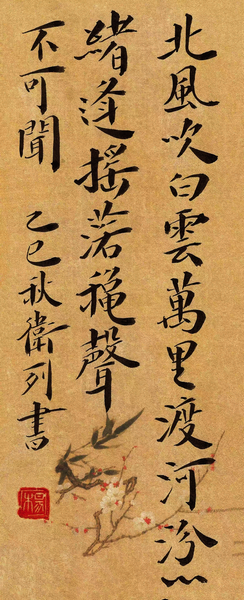 北風吹白雲萬里渡河汾心
緒逢搖落穐聲
不可聞 乙巳秋衛列書